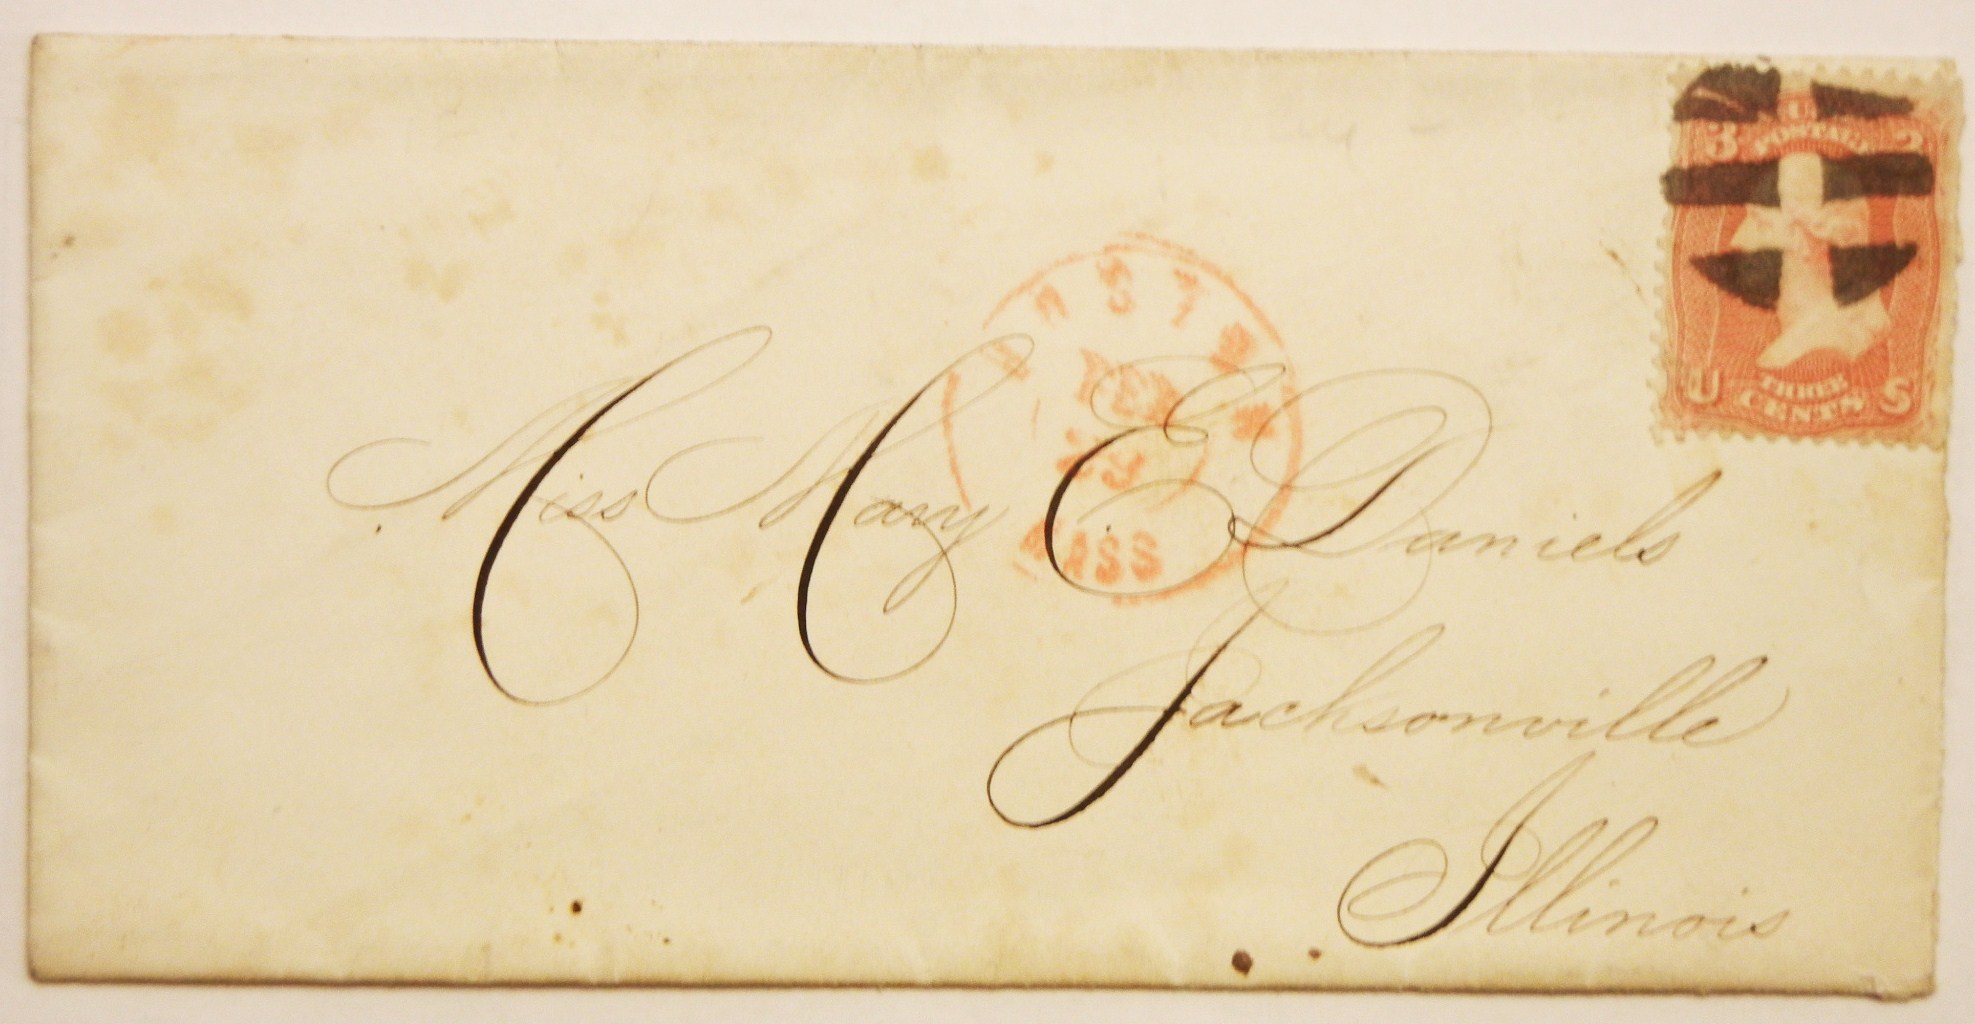 U
3 POSTAGE
U THREE S
CENTS
FEB
MASS
Miss Mary E. Daniels
Jacksonville
Illinois